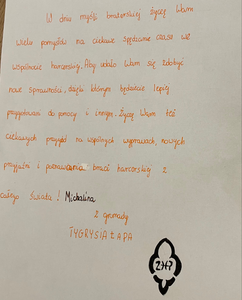 W dniu myśli braterskiej życzę Wam
wielu pomysłów na ciekawe spędzanie czasu we
wspólnocie harcerskiej. Aby udało Wam się zdobyć
nowe sprawności, dzięki którym będziecie lepiej
przygotowani do pomocy innym. Życzę Wam też
ciekawych przygód na wspólnych wyprawach, nowych
przyjaźni i poznawania braci harcerskiej z
całego świata! Michalina
z gromady
TYGRYSIA ŁAPA